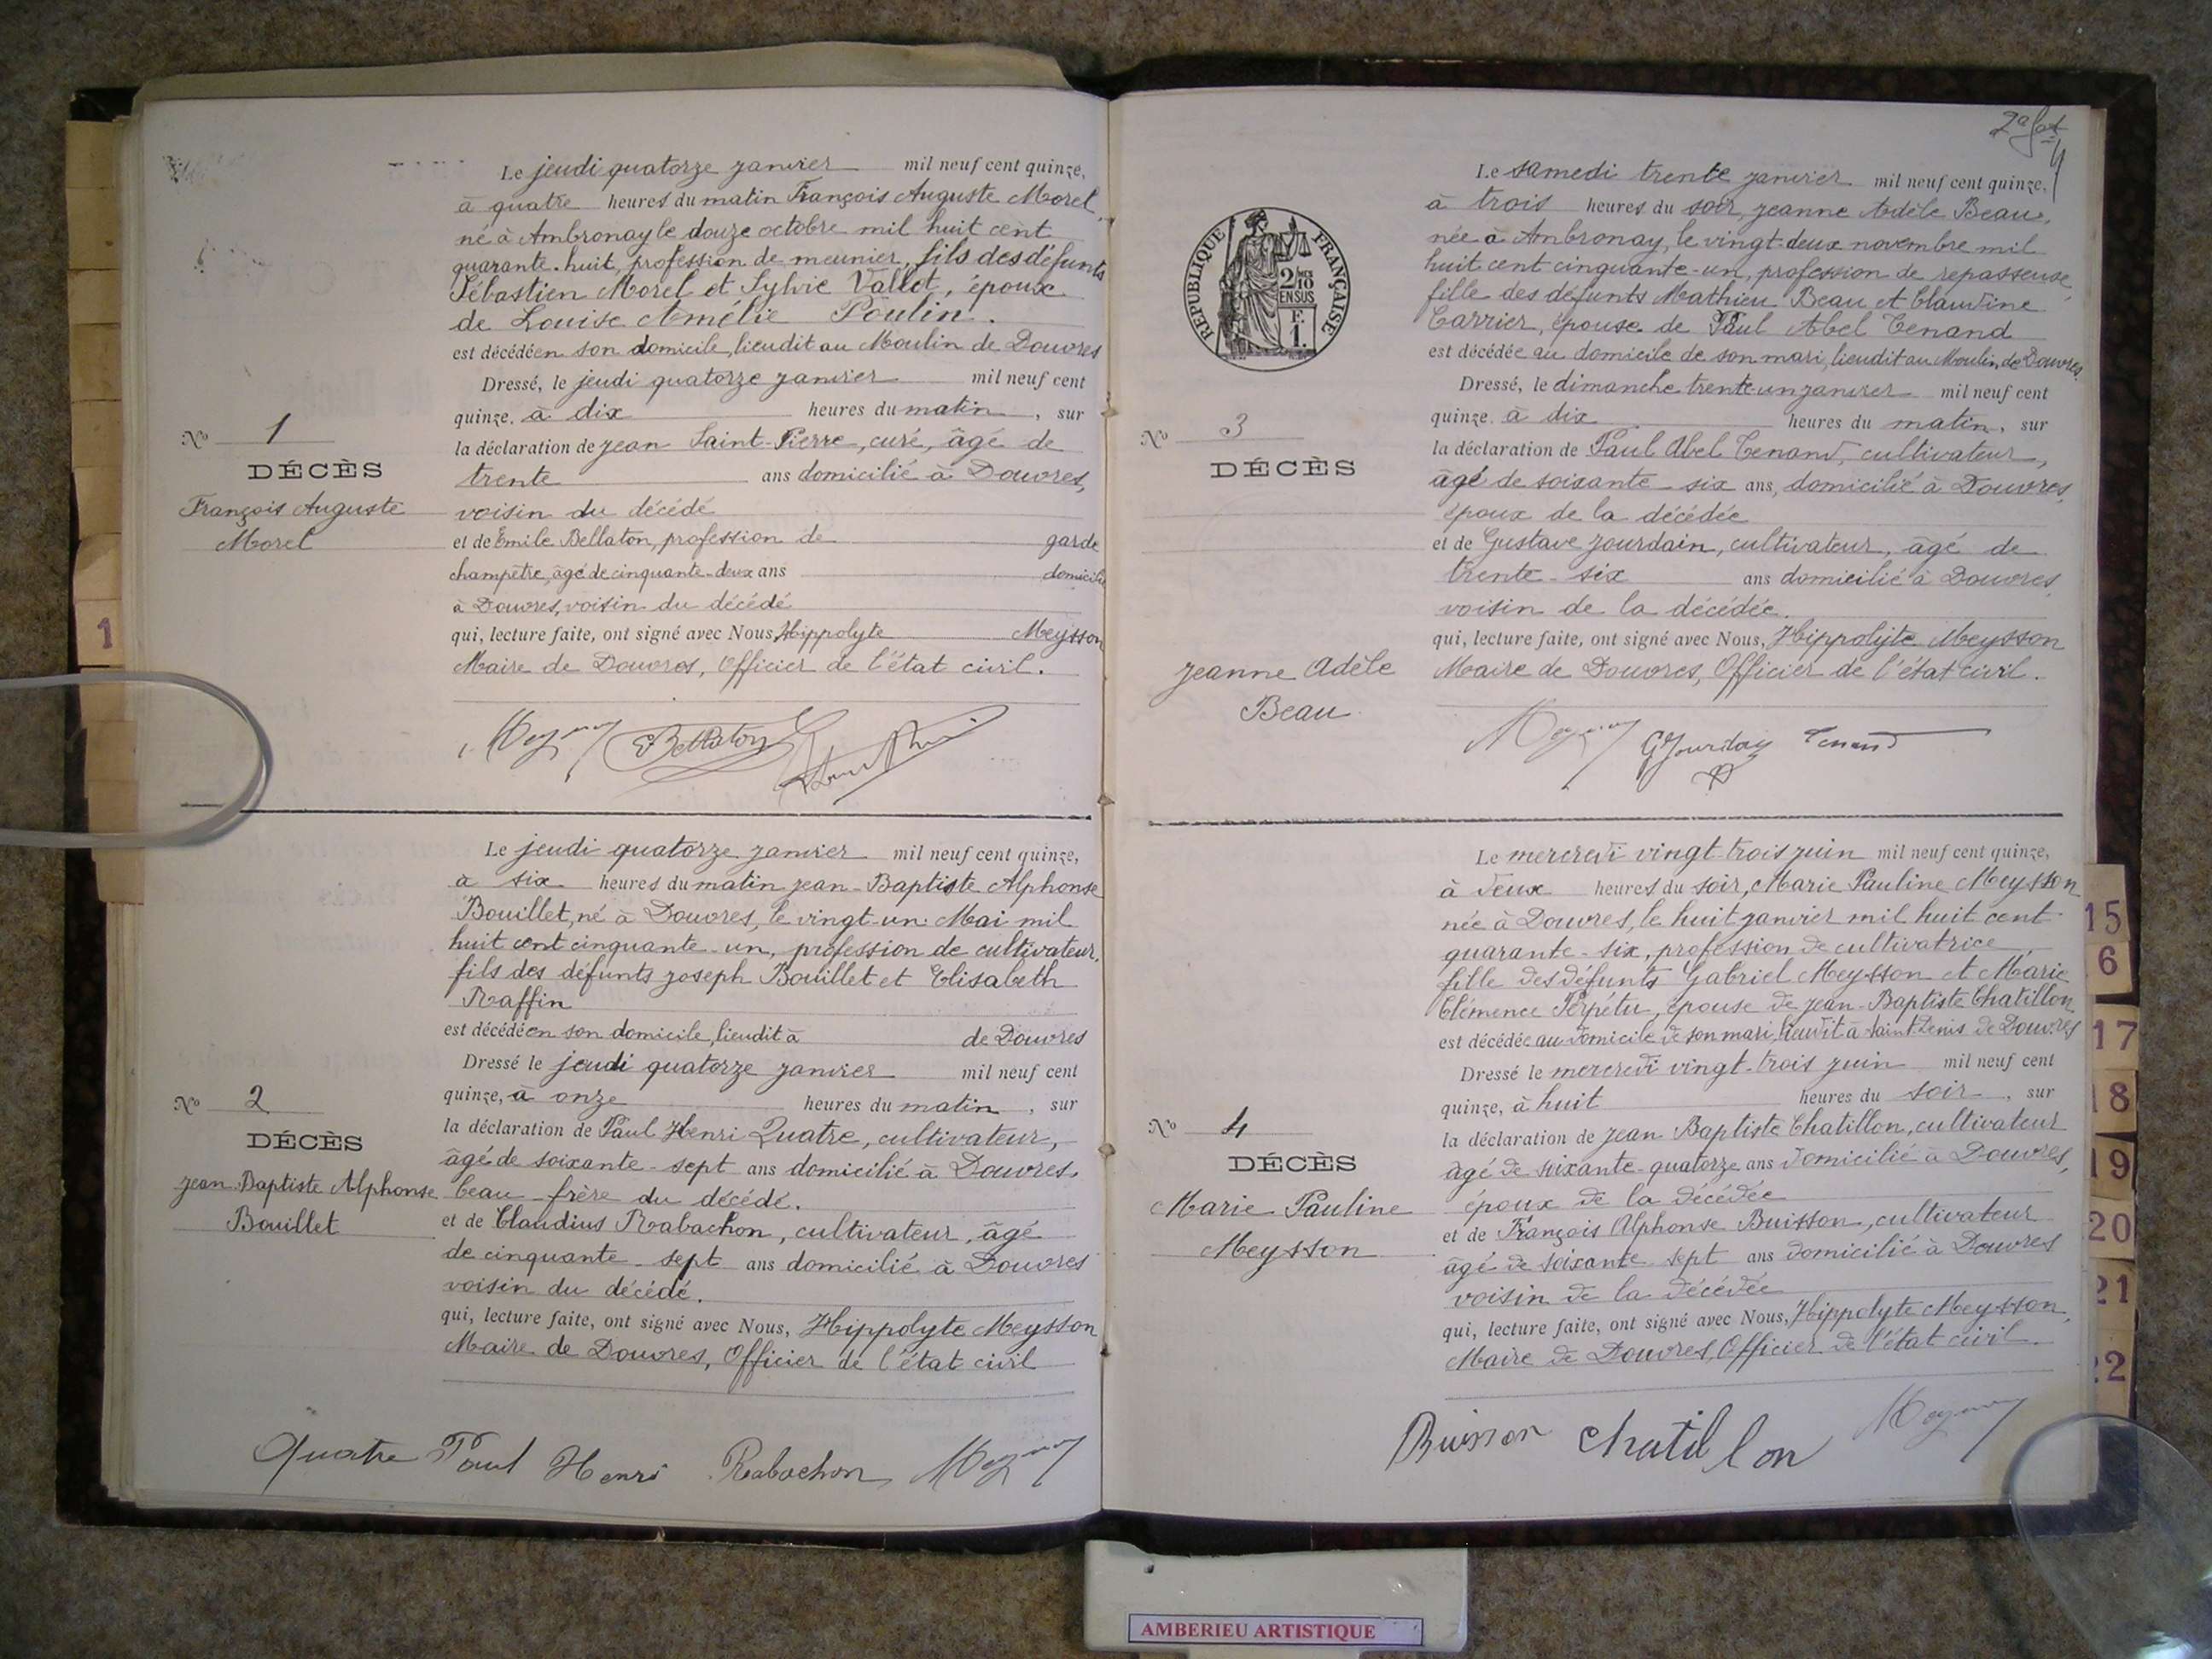 Le jeudi quatorze janvier mil neuf cent quinze,
à quatre heures du matin François Auguste Morel,
né à Ambronay le douze octobre mil huit cent
quarante-huit, profession de meunier, fils des défunts
Sébastien Morel et Sylvie Vallet, époux
de Louise Amélie Poulin.
est décédé en son domicile, lieudit au Moulin de Douvres
Dressé, le jeudi quatorze janvier mil neuf cent
quinze, à dix heures du matin, sur
la déclaration de Jean Saint-Pierre, curé, âgé de
trente ans domicilié à Douvres,
voisin du décédé
et de Emile Bellaton, profession de garde
champêtre, âgé de cinquante-deux ans domicilié
à Douvres, voisin du décédé
qui, lecture faite, ont signé avec Nous, Hippolyte Meysson
Maire de Douvres, Officier de l'état civil.
No 1
DÉCÈS
François Auguste
Morel
1
EBellaton
Le jeudi quatorze janvier mil neuf cent quinze,
à six heures du matin Jean-Baptiste Alphonse
Bouillet, né à Douvres, le vingt-un Mai mil
huit cent cinquante-un, profession de cultivateur,
fils des défunts Joseph Bouillet et Elisabeth
Raffin
est décédé en son domicile, lieudit à de Douvres
Dressé le jeudi quatorze janvier mil neuf cent
quinze, à onze heures du matin, sur
la déclaration de Paul Henri Quatre, cultivateur,
âgé de soixante-sept ans domicilié à Douvres,
beau-frère du décédé.
et de Claudius Rabachon, cultivateur, âgé
de cinquante-sept ans domicilié à Douvres
voisin du décédé.
qui, lecture faite, ont signé avec Nous, Hippolyte Meysson
Maire de Douvres, Officier de l'état civil
No 2
DÉCÈS
Jean-Baptiste Alphonse
Bouillet
Quatre Paul Henri Rabachon
RÉPUBLIQUE FRANÇAISE
2/10
EN SUS
F.
1.
Le samedi trente janvier mil neuf cent quinze,
à trois heures du soir, Jeanne Adèle Beau,
née à Ambronay, le vingt-deux novembre mil
huit cent cinquante-un, profession de repasseuse,
fille des défunts Mathieu Beau et Claudine
Carrier, épouse de Paul Abel Tenand
est décédée au domicile de son mari, lieudit au Moulin de Douvres.
Dressé, le dimanche trente-un janvier mil neuf cent
quinze, à dix heures du matin, sur
la déclaration de Paul Abel Tenand, cultivateur,
âgé de soixante-six ans, domicilié à Douvres,
époux de la décédée
et de Gustave Jourdain, cultivateur, âgé de
trente-six ans domicilié à Douvres,
voisin de la décédée.
qui, lecture faite, ont signé avec Nous, Hippolyte Meysson
Maire de Douvres, Officier de l'état civil.
No 3
DÉCÈS
Jeanne Adèle
Beau
GJourdain Tenand
Le mercredi vingt-trois juin mil neuf cent quinze,
à deux heures du soir, Marie Pauline Meysson
née à Douvres, le huit janvier mil huit cent
quarante-six, profession de cultivatrice,
fille des défunts Gabriel Meysson et Marie
Clémence Perpétu, épouse de Jean-Baptiste Chatillon
est décédée au domicile de son mari, lieudit à Saint Denis de Douvres
Dressé le mercredi vingt-trois juin mil neuf cent
quinze, à huit heures du soir, sur
la déclaration de Jean Baptiste Chatillon, cultivateur
âgé de soixante-quatorze ans domicilié à Douvres,
époux de la décédée
et de François Alphonse Buisson, cultivateur
âgé de soixante-sept ans domicilié à Douvres
voisin de la décédée
qui, lecture faite, ont signé avec Nous, Hippolyte Meysson,
Maire de Douvres, Officier de l'état civil.
No 4
DÉCÈS
Marie Pauline
Meysson
Buisson Chatillon
15
6
17
18
19
20
21
22
AMBERIEU ARTISTIQUE